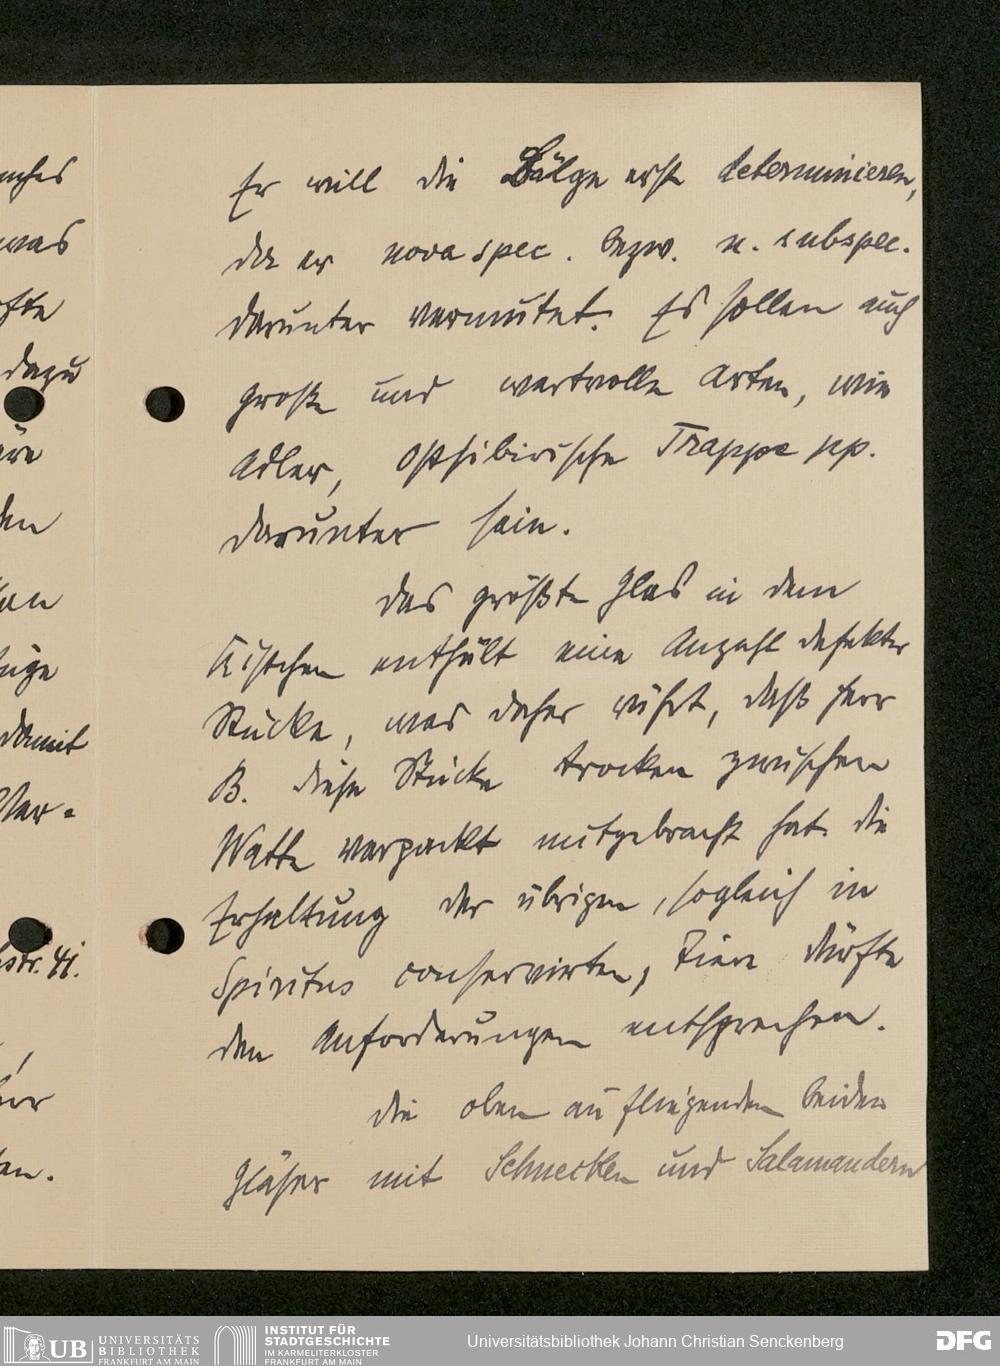 Er will die Bälge erst determinieren,
da er nova spec. bezw. n. subspec.
darunter vermutet. Es sollen auch
große und wertvolle Arten, wie
Adler, Ostsibirische Trappe pp.
darunter sein.
Das größte Glas in dem
Kistchen enthält eine Anzahl defekter
Stücke, was daher rührt, daß Herr
B. diese Stücke trocken zwischen
Watte verpackt mitgebracht hat. Die
Erhaltung der übrigen, sogleich in
Spiritus conservierten, Tiere dürfte
den Anforderungen entsprechen.
Die oben aufliegenden beiden
Gläser mit Schnecken und Salamandern
was
dazu
den
damit
Ver-
str. 41.
UB UNIVERSITÄTS
BIBLIOTHEK
FRANKFURT AM MAIN
INSTITUT FÜR
STADTGESCHICHTE
IM KARMELITERKLOSTER
FRANKFURT AM MAIN
Universitätsbibliothek Johann Christian Senckenberg
DFG